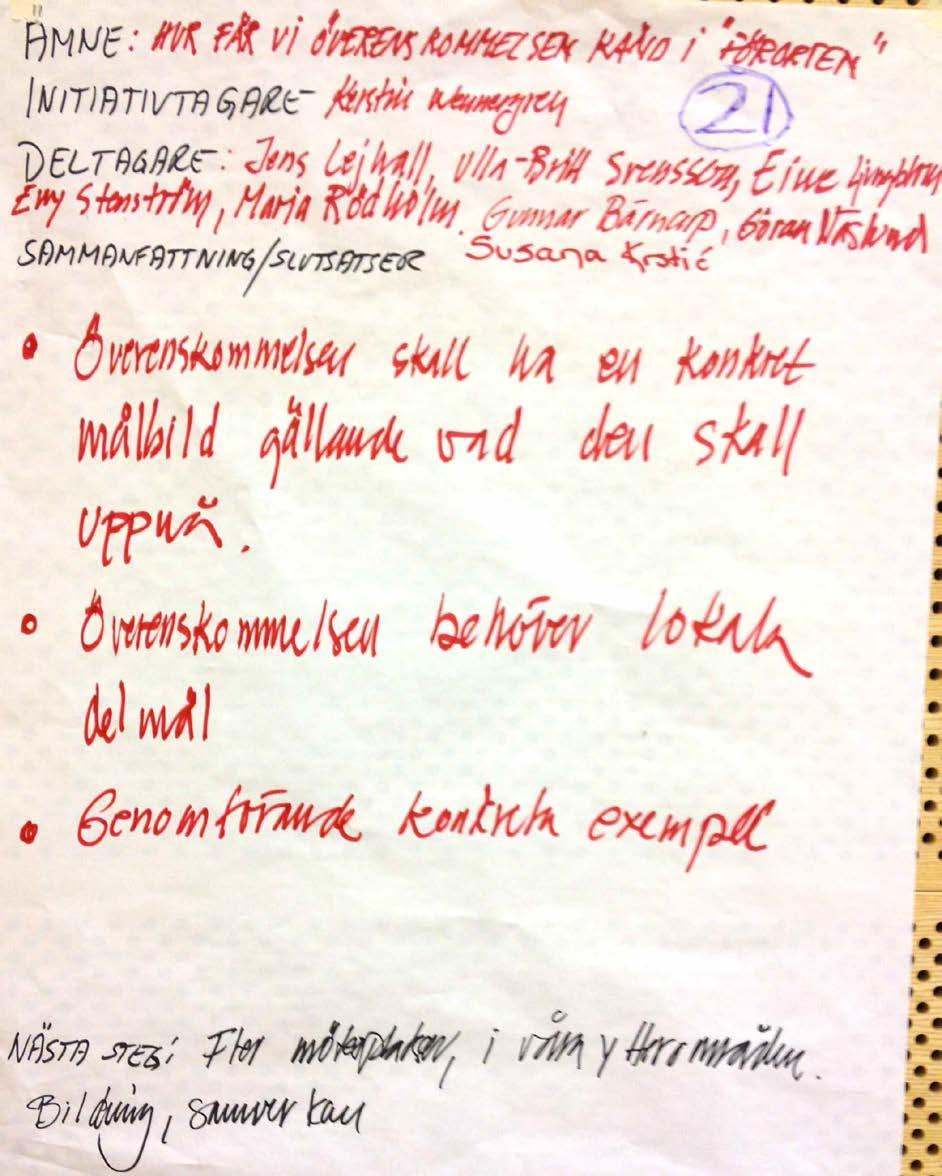 ÄMNE: HUR FÅR VI ÖVERENSKOMMELSEN KÄND I "FÖRORTEN"
INITIATIVTAGARE Kerstin Wennergren
21
DELTAGARE: Jens Lejhall, Ulla-Britt Svensson, Eine Ljungblom
Emy Stenström, Maria Rödholm. Gunnar Bärnarp, Göran Näslund
SAMMANFATTNING/SLUTSATSER Susana Krstić
• Överenskommelsen skall ha en konkret
målbild gällande vad den skall
uppnå.
• Överenskommelsen behöver lokala
delmål
• Genomförande konkreta exempel
NÄSTA STEG: Fler mötesplatser, i våra ytterområden.
Bildning, samverkan